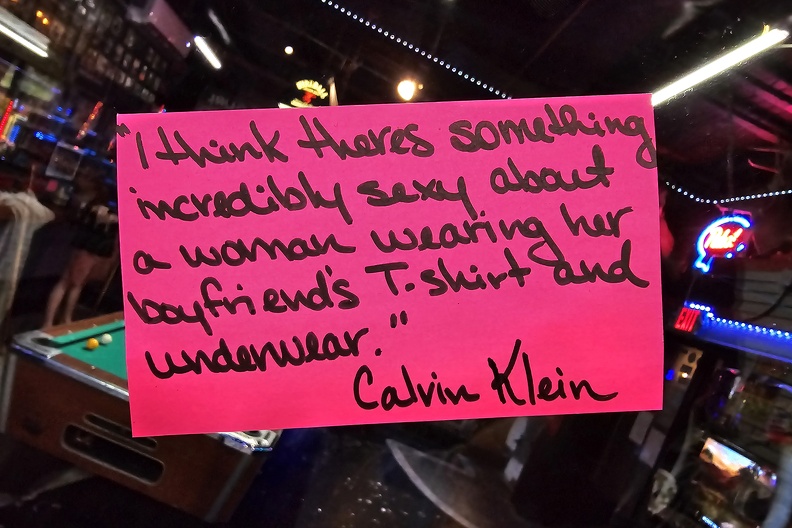 "I think there's something
incredibly sexy about
a woman wearing her
boyfriend's T-shirt and
underwear."
Calvin Klein
Pabst
EXIT